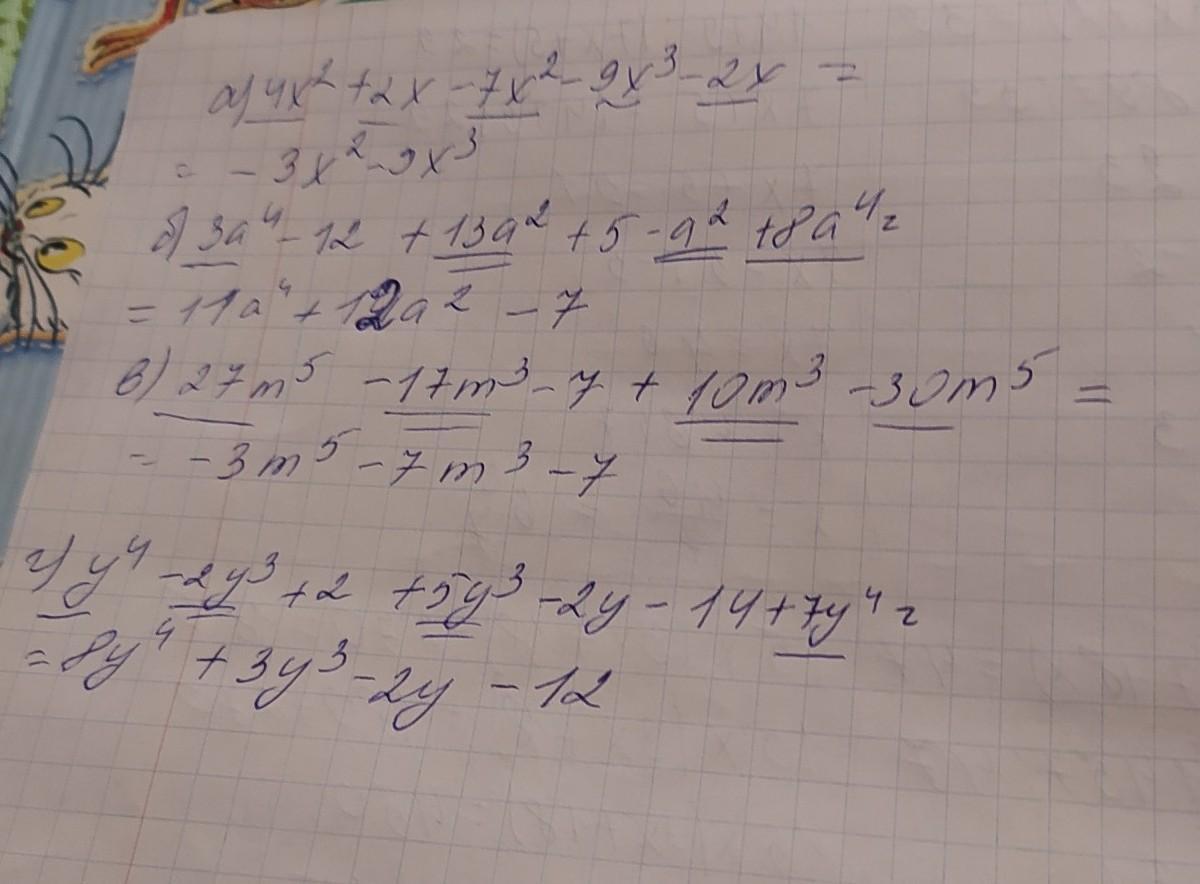 а) 4x² + 2x - 7x² - 9x³ - 2x =
= - 3x² - 9x³
б) 3a⁴ - 12 + 13a² + 5 - a² + 8a⁴ =
= 11a⁴ + 12a² - 7
в) 27m⁵ - 17m³ - 7 + 10m³ - 30m⁵ =
= - 3m⁵ - 7m³ - 7
г) y⁴ - 2y³ + 2 + 5y³ - 2y - 14 + 7y⁴ =
= 8y⁴ + 3y³ - 2y - 12